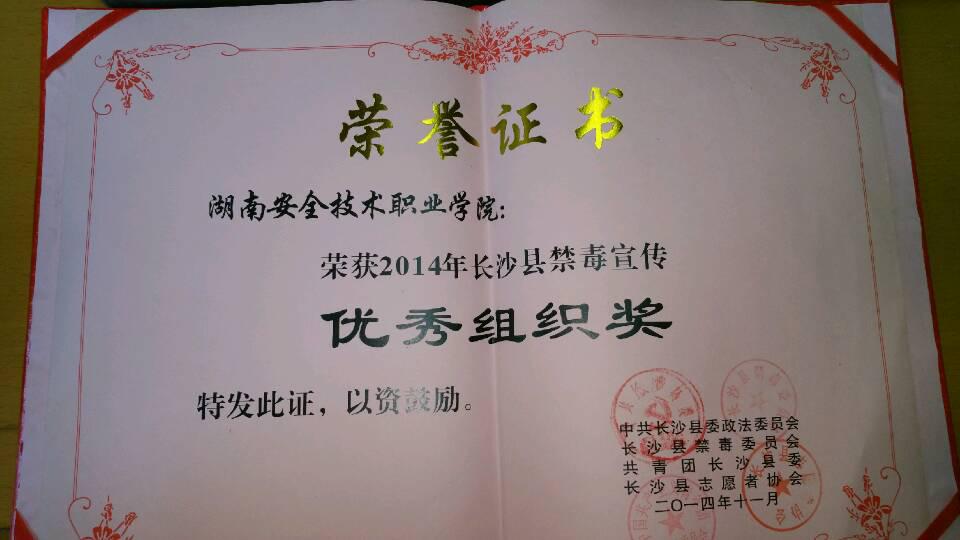 荣誉证书
湖南安全技术职业学院：
荣获2014年长沙县禁毒宣传
优秀组织奖
特发此证，以资鼓励。
中共长沙县委政法委员会
长沙县禁毒委员会
共青团长沙县委
长沙县志愿者协会
二〇一四年十一月